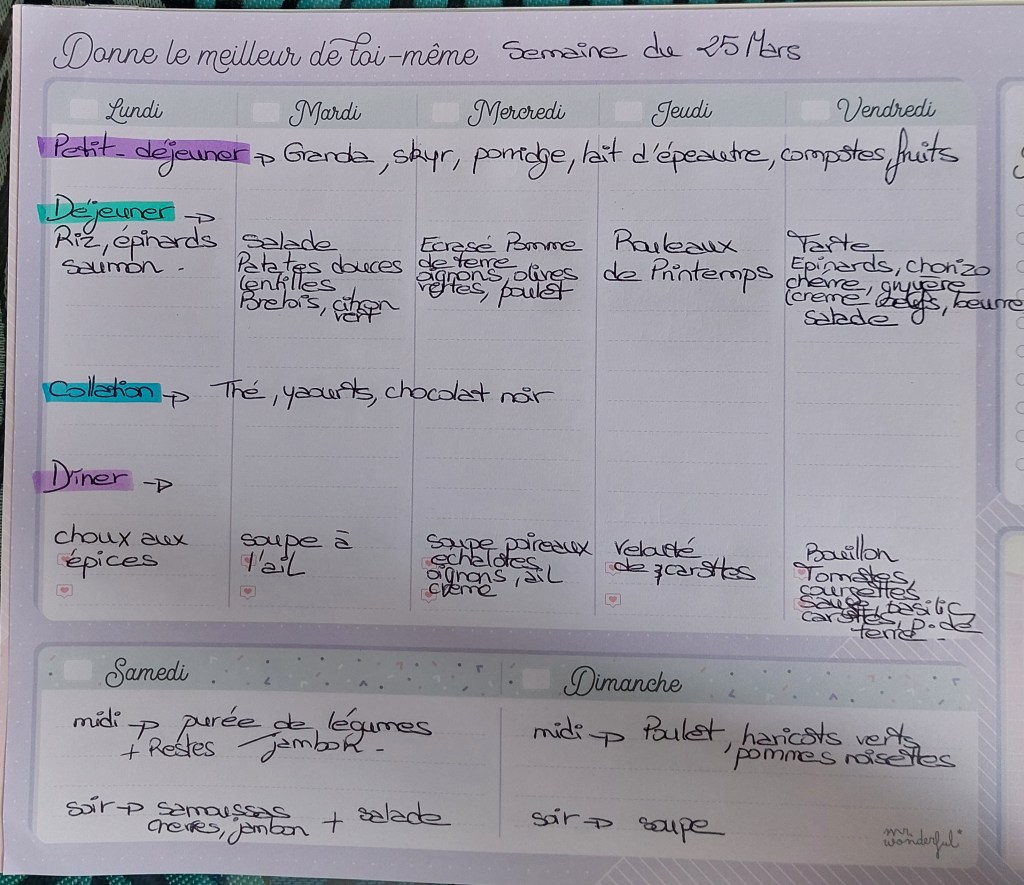 Donne le meilleur de toi-même Semaine du 25 Mars
Lundi Mardi Mercredi Jeudi Vendredi
Petit-déjeuner → Granola, skyr, porridge, lait d'épeautre, compotes, fruits
Déjeuner →
Riz, épinards
saumon.
Salade
Patates douces
lentilles
Brebis, citron
vert
Ecrasé Pomme
de terre
oignons, olives
vertes, poulet
Rouleaux
de Printemps
Tarte
Epinards, chorizo
chèvre, gruyère
(crème oeufs, beurre
salade
Collation → Thé, yaourts, chocolat noir
Dîner →
choux aux
épices
soupe à
l'ail
soupe poireaux
échalotes
oignons, ail
crème
Velouté
de carottes
Bouillon
Tomates,
courgettes
sauge, basilic
carottes, p. de
terre.
Samedi
midi → purée de légumes
+ Restes jambon.
soir → samoussas + salade
chèvres, jambon
Dimanche
midi → Poulet, haricots verts,
pommes noisettes
soir → soupe
mr.
wonderful*